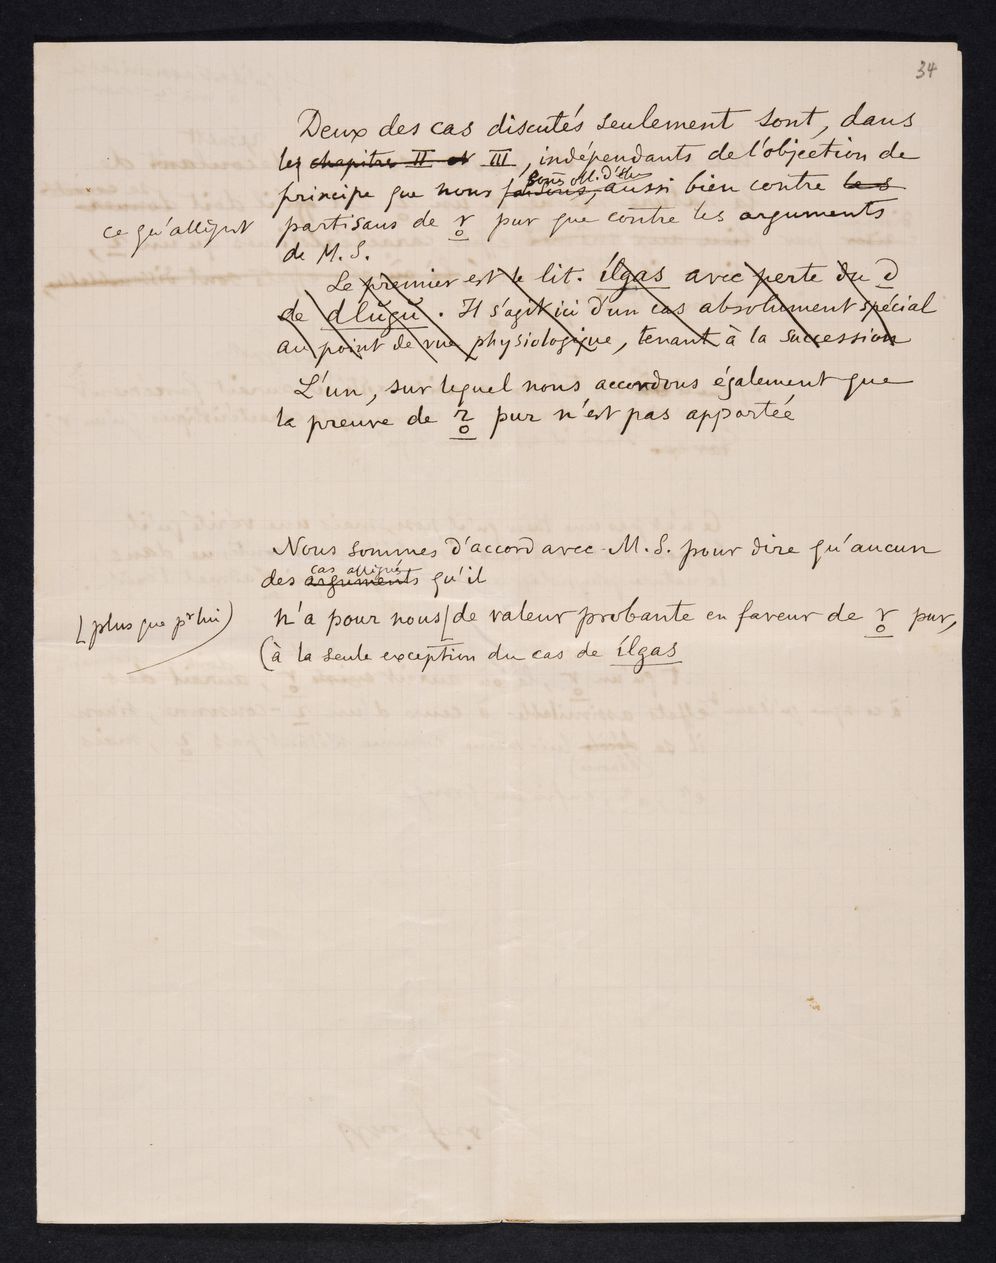 34
Deux des cas discutés seulement sont, dans
les chapitres II et III, indépendants de l'objection de
sons obli. d'élev
principe que nous faisons, aussi bien contre les
ce qu'allèguent partisans de r̥ pur que contre les arguments
de M. S.
Le premier est le lit. ílgas avec perte du d
de dlŭgŭ. Il s'agit ici d'un cas absolument spécial
au point de vue physiologique, tenant à la succession
L'un, sur lequel nous accordons également que
la preuve de r̥ pur n'est pas apportée
Nous sommes d'accord avec M. S. pour dire qu'aucun
cas allégués
des arguments qu'il
[plus que pr lui) n'a pour nous [de valeur probante en faveur de r̥ pur,
(à la seule exception du cas de ílgas